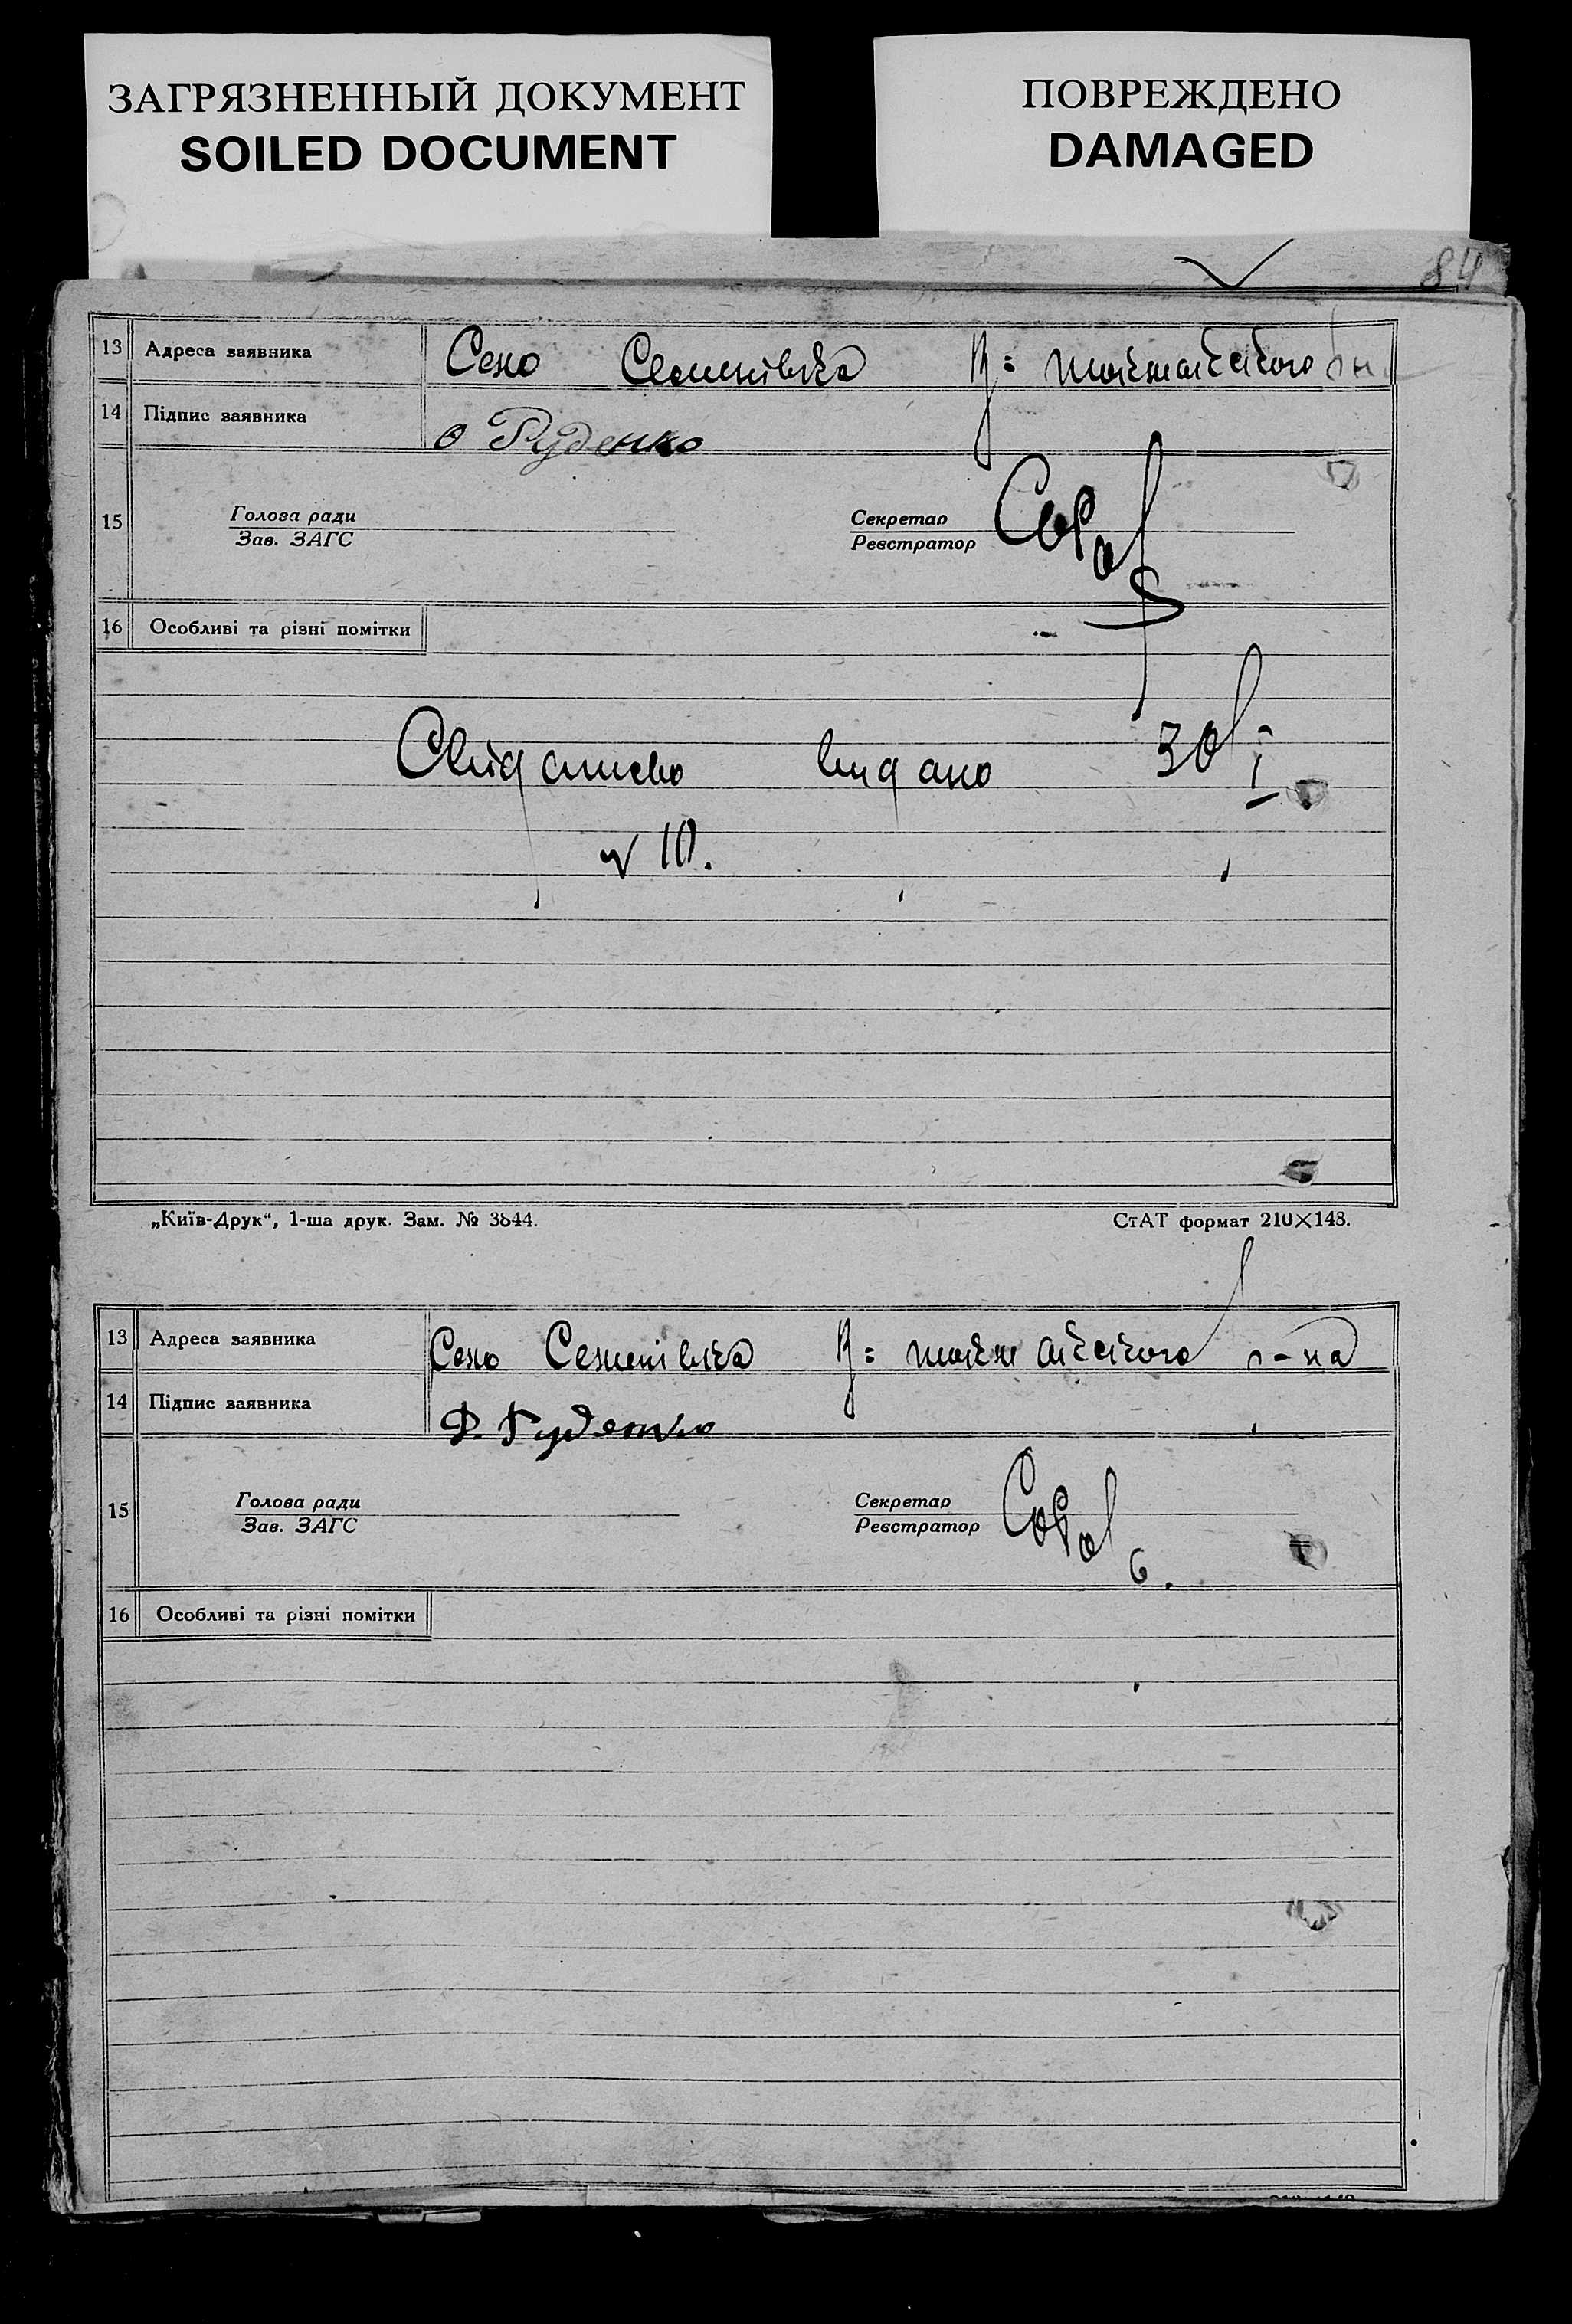 ЗАГРЯЗНЕННЫЙ ДОКУМЕНТ
SOILED DOCUMENT
ПОВРЕЖДЕНО
DAMAGED
84
13 Адреса заявника Село Семенівка В=токмакського
14 Підпис заявника О Руденко
15 Голова ради
Зав. ЗАГС
Секретар
Реєстратор
16 Особливі та різні помітки
Свідоцтво видано 30/I
№ 10.
„Київ-Друк“, 1-ша друк. Зам. № 3844.
СтАТ формат 210×148.
13 Адреса заявника Село Семенівка В=токмакського р-на
14 Підпис заявника Ф. Руденко
15 Голова ради
Зав. ЗАГС
Секретар
Реєстратор
16 Особливі та різні помітки